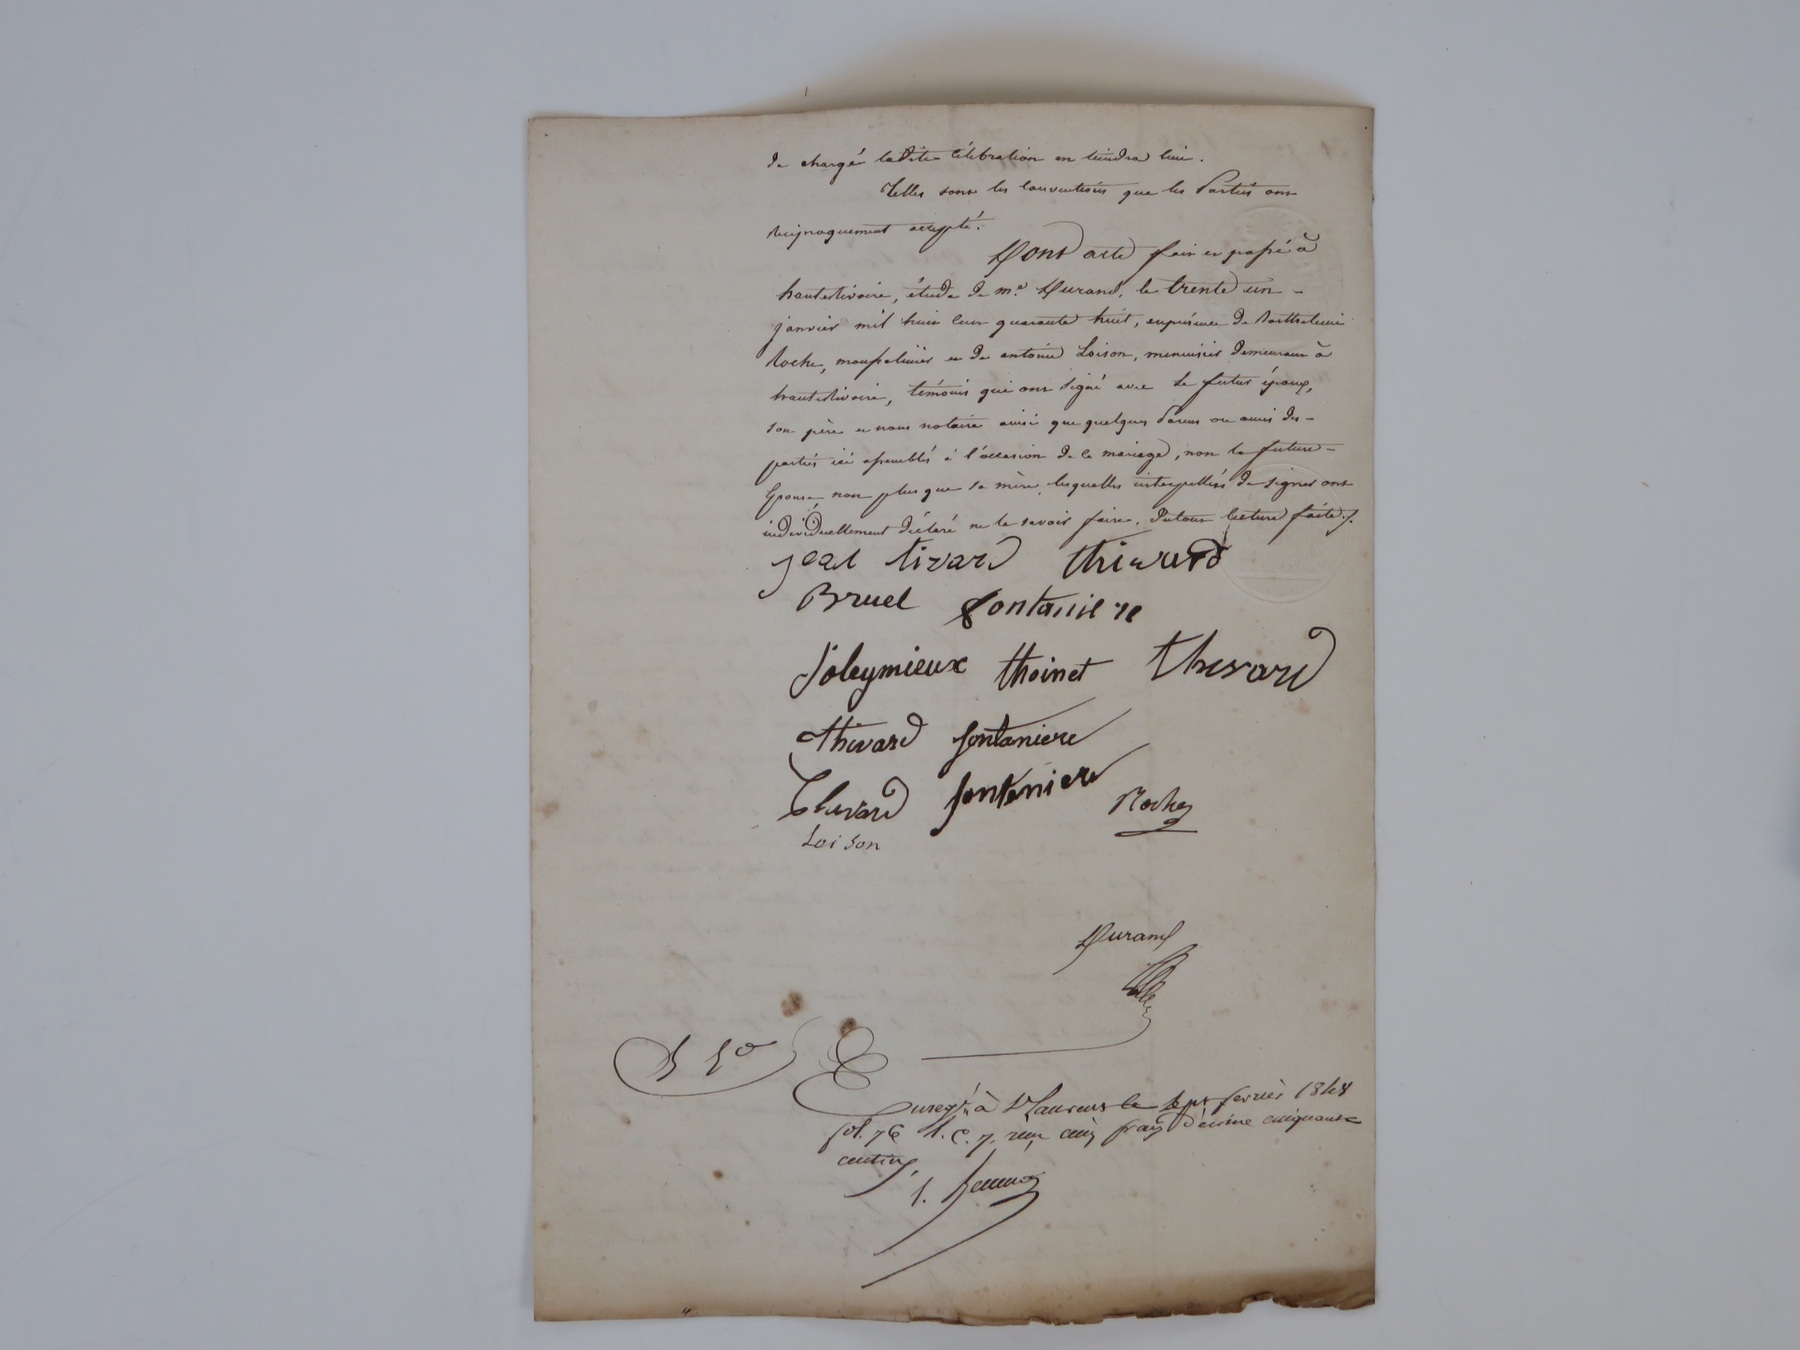 de charge ladite célébration en tiendra lieu.
Telles sont les conventions que les Parties ont
réciproquement accepté.
Dont acte fait et passé à
hauterivoire, étude de me. Durand, le trente un
janvier mil huit cent quarante huit, en présence de Barthelemi
Roche, et de antoine Loison, menuisier demeurant à
hauterivoire, témoins qui ont signé avec le futur époux,
son père et nous notaire ainsi que quelques Parens ou amis des
parties ici assemblés à l'occasion de ce mariage, non la future
Epouse, non plus que sa mère, lesquelles interpellées de signer ont
individuellement déclaré ne le savoir faire. Du tout lecture faite ./.
jean tivard thivard
Bruel fontaniere
Soleymieux thoinet thivard
thivard fontaniere
thivard fonteniere Roche
Loison
Durand
Enregté à St Laurent le sept fevrier 1848
fol. 76 R. C. 7. reçu cinq francs décime cinquante
centimes